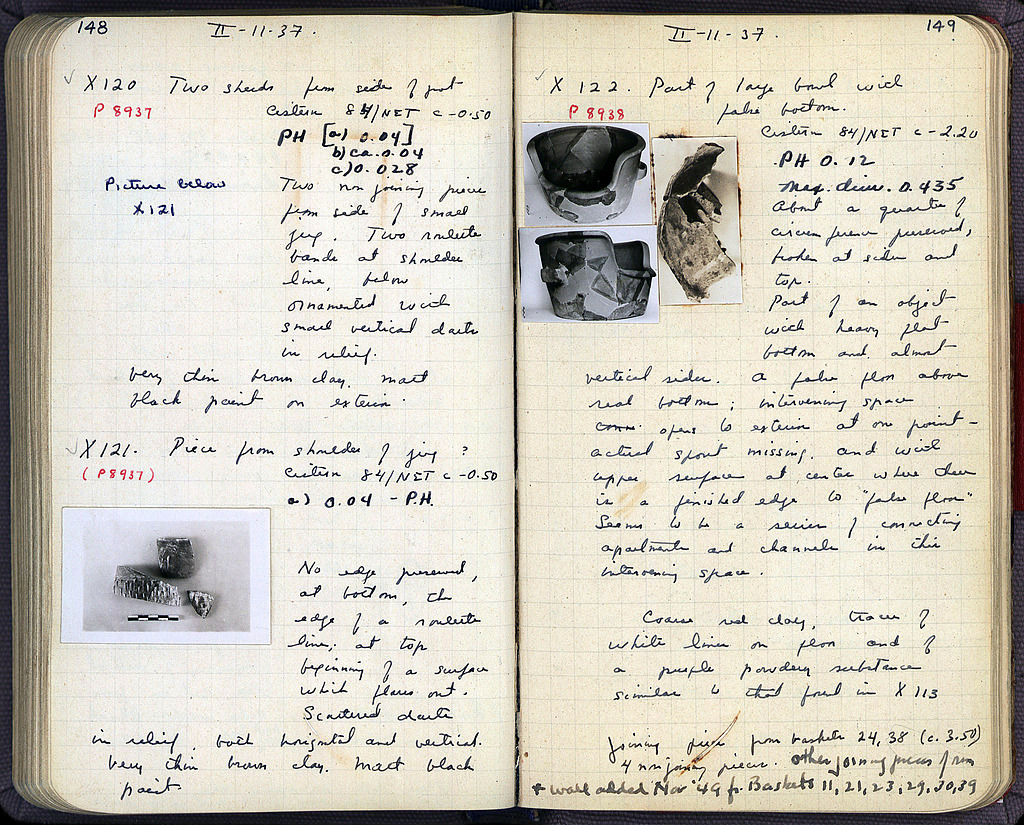 148
II-11-37.
X120 Two sherds from side of pot
P 8937
Cistern 84/NET c -0.50
PH [a) 0.04]
b) ca. 0.04
c) 0.028
Picture below
X121
Two non joining pieces
from side of small
jug. Two roulette
bands at shoulder
line, below
ornamented with
small vertical darts
in relief.
Very thin brown clay. matt
black paint on exterior.
X121. Piece from shoulder of jug ?
(P8937)
Cistern 84/NET c -0.50
a) 0.04 - P.H.
No edge preserved,
at bottom, the
edge of a roulette
line; at top
beginning of a surface
which flares out.
Scattered darts
in relief, both horizontal and vertical.
Very thin brown clay. matt black
paint
149
II-11-37.
X 122. Part of large bowl with
P 8938
false bottom.
Cistern 84/NET c -2.20
PH 0.12
max. diam. 0.435
About a quarter of
circumference preserved,
broken at sides and
top.
Part of an object
with heavy flat
bottom and almost
vertical sides. A false floor above
real bottom; intervening space
opens to exterior at one point -
actual spout missing. and with
upper surface at center where there
is a finished edge to "false floor"
Seems to be a series of connecting
apartments and channels in this
intervening space.
Coarse red clay, traces of
white lime on floor and of
a purple powdery substance
similar to that found in X 113
Joining piece from baskets 24, 38 (c. 3.50)
4 non joining pieces. Other joining pieces from
+ wall added Nov '49 fr. Baskets 11, 21, 23, 29, 30, 39